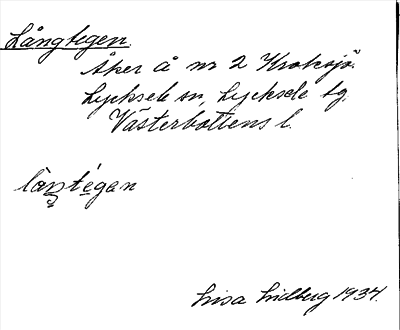 Långtegen.
Åker å nr 2 Kroksjö.
Lycksele sn, Lycksele tg.
Västerbottens l.
låŋtegan
Lisa Lidberg 1934.